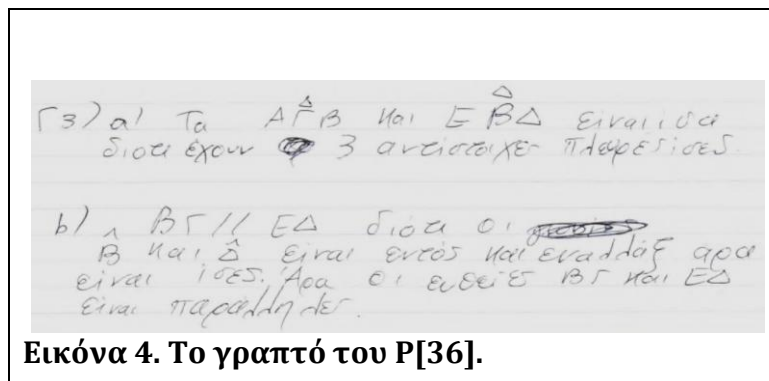 Γ3) α) Τα ΑΓ̂Β και ΕΒ̂Δ είναι ίσα
διότι έχουν 3 αντίστοιχες πλευρές ίσες.
b) ΒΓ // ΕΔ διότι οι
Β̂ και Δ̂ είναι εντός και εναλλάξ αρα
είναι ίσες. Άρα οι ευθείες ΒΓ και ΕΔ
είναι παράλληλες.
Εικόνα 4. Το γραπτό του Ρ[36].